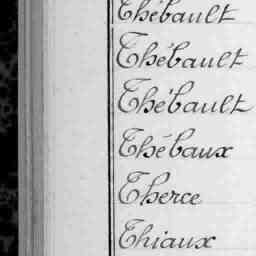 Thébault
Thébault
Thébault
Thébaux
Therce
Thiaux